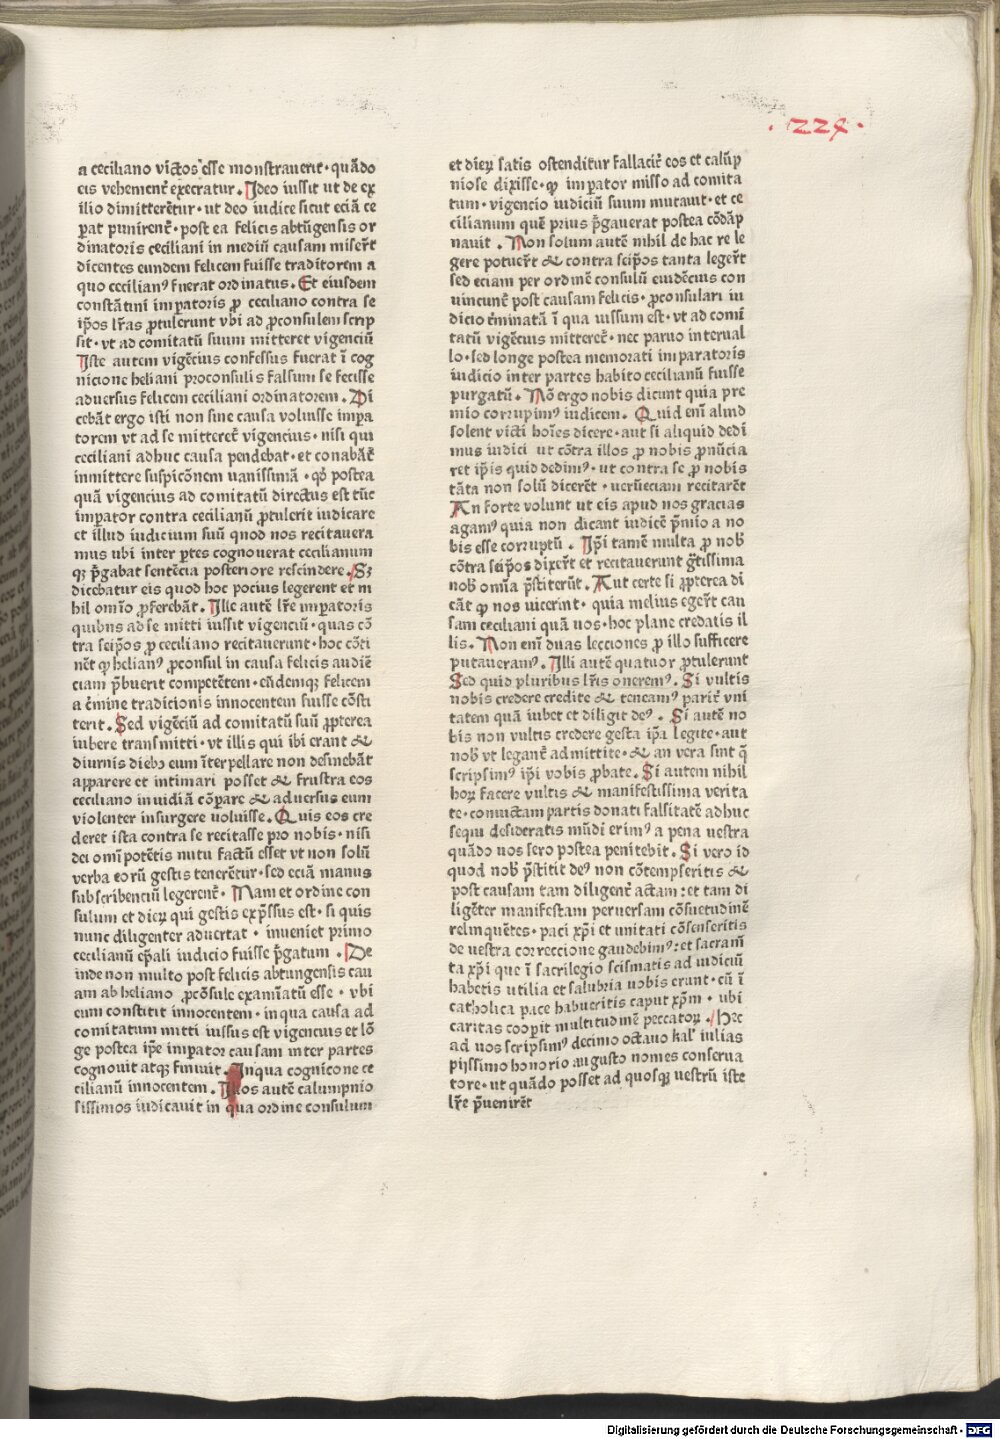 · 224 ·
a ceciliano victos esse monstrauerit · quādo
eis vehementˀ execratur . Ideo iussit ut de ex
ilio dimitterētur · ut deo iudice sicut eciā ce
perat punirentˀ · post ea felicis abtūgensis or
dinatoris ceciliani in mediū causam miserūt
dicentes eundem felicem fuisse traditorem a
quo cecilianꝰ fuerat ordinatus . Et eiusdem
constātini imꝑatoris ꝓ ceciliano contra se
ip̄os lr̄as ꝓtulerunt vbi ad ꝓconsulem scrip
sit · vt ad comitatū suum mitteret vigenciū
Iste autem vigēcius confessus fuerat ī cog
nicione heliani proconsulis falsum se fecisse
aduersus felicem ceciliani ordinatorem . Di
cebāt ergo isti non sine causa voluisse imꝑa
torem vt ad se mitteretˀ vigencius · nisi qui
ceciliani adhuc causa pendebat · et conabātˀ
inmittere suspicōnem uanissimā · qꝙ postea
quā vigencius ad comitatū directus est tūc
imꝑator contra cecilianū ꝓtulerit iudicare
et illud iudicium suū quod nos recitauera
mus ubi inter ꝑtes cognouerat cecilianum
qꝫ p̄gabat sentēcia posteriore rescindere . Sꝫ
dicebatur eis quod hoc pocius legerent et ni
hil om̄io ꝓferebāt . Ille autē lr̄e imꝑatoris
quibus ad se mitti iussit vigenciū · quas cō
tra seip̄os ꝓ ceciliano recitauerunt · hoc cōti
nētˀ qꝙ helianꝰ ꝓconsul in causa felicis audiē
ciam p̄buerit competētem · eūdemqꝫ felicem
a cˀmine tradicionis innocentem fuisse cōsti
terit . Sed vigēciū ad comitatū suū ꝓpterea
iubere transmitti · vt illis qui ibi erant &
diurnis diebꝰ eum īterpellare non desinebāt
apparere et intimari posset & frustra eos
ceciliano inuidiā cōparare & aduersus eum
violenter insurgere uoluisse . Quis eos cre
deret ista contra se recitasse pro nobis · nisi
dei omīpotētis nutu factū esset vt non solū
verba eorū gestis tenerētur · sed eciā manus
subscribenciū legerentˀ . Nam et ordine con
sulum et dierꝝ qui gestis exp̄ssus est · si quis
nunc diligenter aduertat · inueniet primo
cecilianū ep̄ali iudicio fuisse p̄gatum . De
inde non multo post felicis abtungensis cau
am ab heliano ꝓcōsule examīatū esse · vbi
eum constitit innocentem · in qua causa ad
comitatum mitti iussus est vigencius et lō
ge postea ip̄e imꝑator causam inter partes
cognouit atqꝫ finiuit . In qua cognicone ce
cilianū innocentem . Illos autē calumpnio
sissimos iudicauit in qua ordine consulum
et dierꝝ satis ostenditur fallacitˀ eos et calūp
niose dixisse · qꝙ imꝑator misso ad comita
tum · vigencio iudiciū suum mutauit · et ce
cilianum quē prius p̄gauerat postea cōdāp
nauit . Non solum autē nihil de hac re le
gere potuerūt & contra seip̄os tanta legerūt
sed eciam per ordinē consulū euidēcius con
uincunt̄ post causam felicis · ꝓconsulari iu
dicio tˀminatā ī qua iussum est · vt ad comi
tatū vigēcius mitteretˀ · nec paruo interual
lo · sed longe postea memorati imꝑatoris
iudicio inter partes habito cecilianū fuisse
purgatū . Nō ergo nobis dicunt quia pre
mio corrupimꝰ iudicem . Quid enī aliud
solent victi hoīes dicere · aut si aliquid dedi
mus iudici ut cōtra illos ꝓ nobis ꝓnūcia
ret ip̄is quid dedimꝰ · ut contra se ꝓ nobis
tāta non solū dicerēt · uerūeciam recitarēt
An forte volunt ut eis apud nos gracias
agamꝰ quia non dicant iudicē p̄mio a no
bis esse corruptū . Ip̄i tamē multa ꝓ nob̄
cōtra seip̄os dixerūt et recitauerunt gˀtissima
nob̄ om̄ia p̄stiterūt . Aut certe si ꝓpterea di
cāt qꝙ nos uicerint · quia melius egerūt cau
sam ceciliani quā nos · hoc plane credatis il
lis . Non enī duas lecciones ꝓ illo sufficere
putaueramꝰ . Illi autē quatuor ꝓtulerunt
Sed quid pluribus lr̄is oneremꝰ . Si vultis
nobis credere credite & teneamꝰ paritˀ vni
tatem quā iubet et diligit deꝰ . Si autē no
bis non vultis credere gesta ip̄a legite · aut
nob̄ vt legantˀ admittite · & an vera sint q̄
scripsimꝰ ip̄i vobis ꝓbate . Si autem nihil
horꝝ facere vultis & manifestissima verita
te · conuictam partis donati falsitatē adhuc
sequi desideratis mūdi erimꝰ a pena uestra
quādo uos sero postea penitebit . Si vero id
quod nob̄ p̄stitit deꝰ non cōtempseritis &
post causam tam diligentˀ actam : et tam di
ligēter manifestam peruersam cōsuetudinē
relinquētes · paci xp̄i et unitati cōsenseritis
de uestra correccione gaudebimꝰ : et sacramī
ta xp̄i que ī sacrilegio scismatis ad iudiciū
habetis utilia et salubria uobis erunt · cū ī
catholica pace habueritis caput xp̄m · ubi
caritas coopit multitudinē peccatorꝝ . Hec
ad uos scripsimꝰ decimo octauo kal̄ iulias
pijssimo honorio augusto nomes conserua
tore · ut quādo posset ad quosqꝫ uestrū iste
lr̄e p̄uenirēt
Digitalisierung gefördert durch die Deutsche Forschungsgemeinschaft - DFG